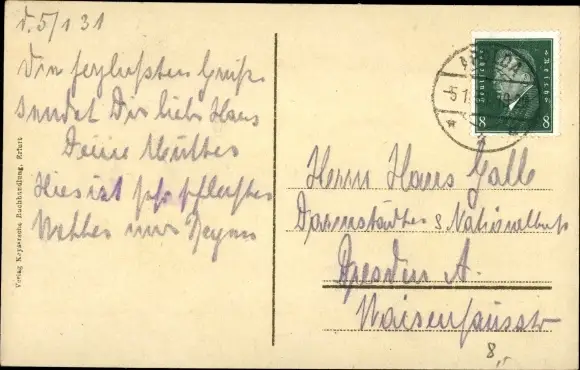 d. 5/1 31
Den herzlichsten Gruß
sendet Dir lieb Hans
Deine Mutter
Hier ist sehr schlechtes
Wetter nur Regen
Verlag Keysersche Buchhandlung, Erfurt
Deutsches Reich
8 8
APOLDA
5.1.
Herrn Hans Galle
Darmstädter & Nationalbank
Dresden A.
Waisenhausstr
8,-